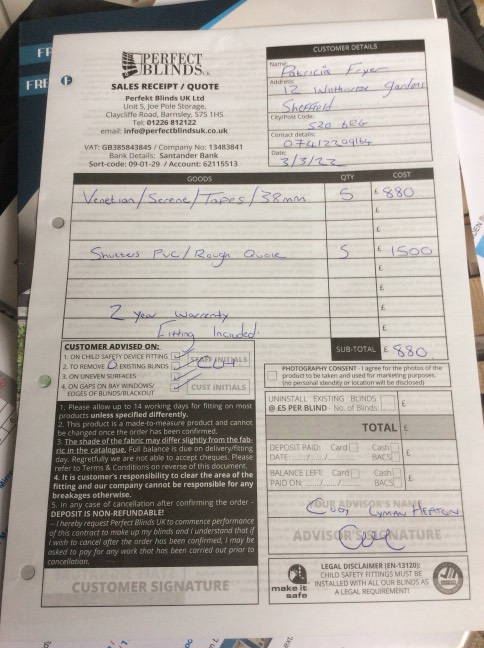 FR
FRE
PERFECT
BLINDS UK
SALES RECEIPT / QUOTE
Perfekt Blinds UK Ltd
Unit 5, Joe Pole Storage,
Claycliffe Road, Barnsley, S75 1HS
Tel: 01226 812122
email: info@perfectblindsuk.co.uk
VAT: GB385843845 / Company No: 13483841
Bank Details: Santander Bank
Sort-code: 09-01-29 / Account: 62115513
CUSTOMER DETAILS
Name: Patricia Fryer
Address: 12 Gardens
Sheffield
City/Post Code: S20 6RG
Contact details:
Date: 3/3/22
GOODS QTY COST
Venetian/Serene/Tapes/38mm 5 £ 880
£
£
Shutters PVC/Rough Quote 5 £ 1500
£
£
2 Year Warrenty £
Fitting Included £
SUB-TOTAL £ 880
CUSTOMER ADVISED ON:
1. ON CHILD SAFETY DEVICE FITTING
2. TO REMOVE 0 EXISTING BLINDS
3. ON UNEVEN SURFACES
4. ON GAPS ON BAY WINDOWS/
EDGES OF BLINDS/BLACKOUT
STAFF INITIALS
CUST INITIALS
PHOTOGRAPHY CONSENT - I agree for the photos of the
product to be taken and used for marketing purposes.
(no personal idendity or location will be disclosed)
1. Please allow up to 14 working days for fitting on most
products unless specified differently.
2. This product is a made-to-measure product and cannot
be changed once the order has been confirmed.
3. The shade of the fabric may differ slightly from the fab-
ric in the catalogue. Full balance is due on delivery/fitting
day. Regretfully we are not able to accept cheques. Please
refer to Terms & Conditions on reverse of this document.
4. It is customer's responsibility to clear the area of the
fitting and our company cannot be responsible for any
breakages otherwise.
5. In any case of cancellation after confirming the order -
DEPOSIT IS NON-REFUNDABLE!
– I hereby request Perfect Blinds UK to commence performance
of this contract to make up my blinds and I understand that if
I wish to cancel after the order has been confirmed, I may be
asked to pay for any work that has been carried out prior to
cancellation.
CUSTOMER SIGNATURE
UNINSTALL EXISTING BLINDS
@ £5 PER BLIND - No. of Blinds: £
TOTAL £
DEPOSIT PAID: Card Cash
DATE: ...../...../..... BACS £
BALANCE LEFT: Card Cash
PAID ON: ...../...../..... BACS £
YOUR ADVISOR'S NAME
Lyman Heaton
ADVISOR'S SIGNATURE
make it
safe
LEGAL DISCLAIMER (EN-13120):
CHILD SAFETY FITTINGS MUST BE
INSTALLED WITH ALL OUR BLINDS AS
A LEGAL REQUIREMENT!